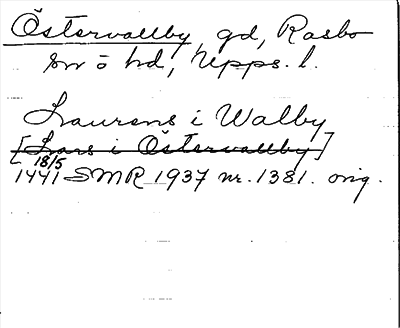 Östervallby, gd, Rasbo
sn o hd, Upps. l.
Laurens i Walby
[Lars i Östervallby]
18/5
1441 SMR 1937 nr. 1381. orig.